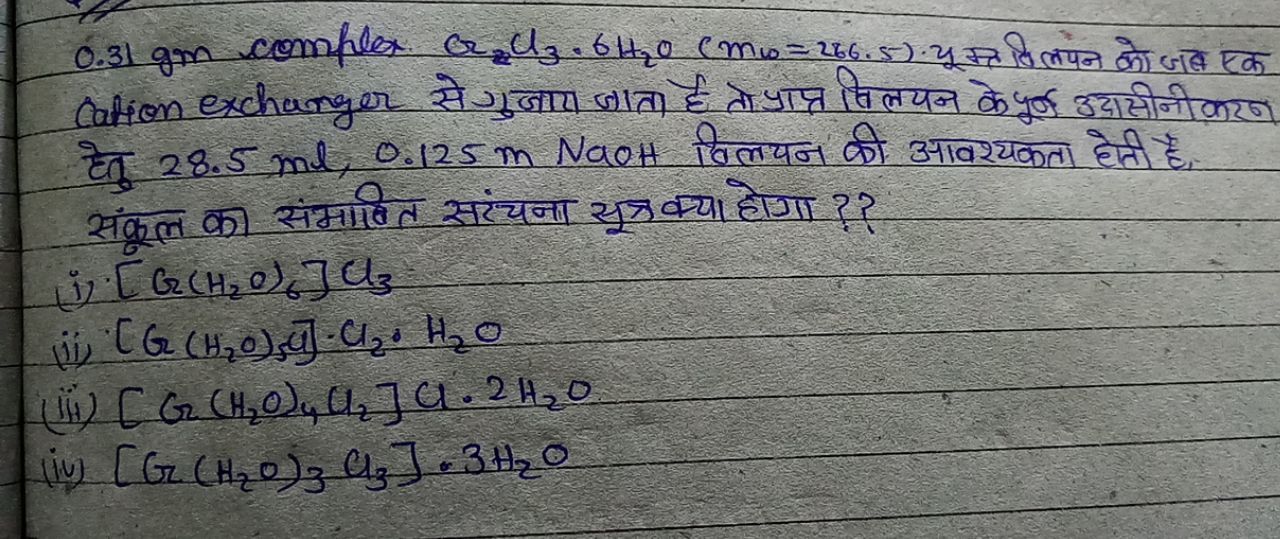 0.31 gm complex Cr2Cl3.6H2O (mw=266.5). युक्त विलयन को जब एक
Cation exchanger से गुजारा जाता है तो प्राप्त विलयन के पूर्ण उदासीनीकरण
हेतु 28.5 ml, 0.125 m NaOH विलयन की आवश्यकता होती है,
संकुल का संभावित सरंचना सूत्र क्या होगा ??
(i) [Cr(H2O)6]Cl3
(ii) [Cr(H2O)5Cl].Cl2. H2O
(iii) [Cr(H2O)4Cl2]Cl.2H2O
(iv) [Cr(H2O)3Cl3].3H2O